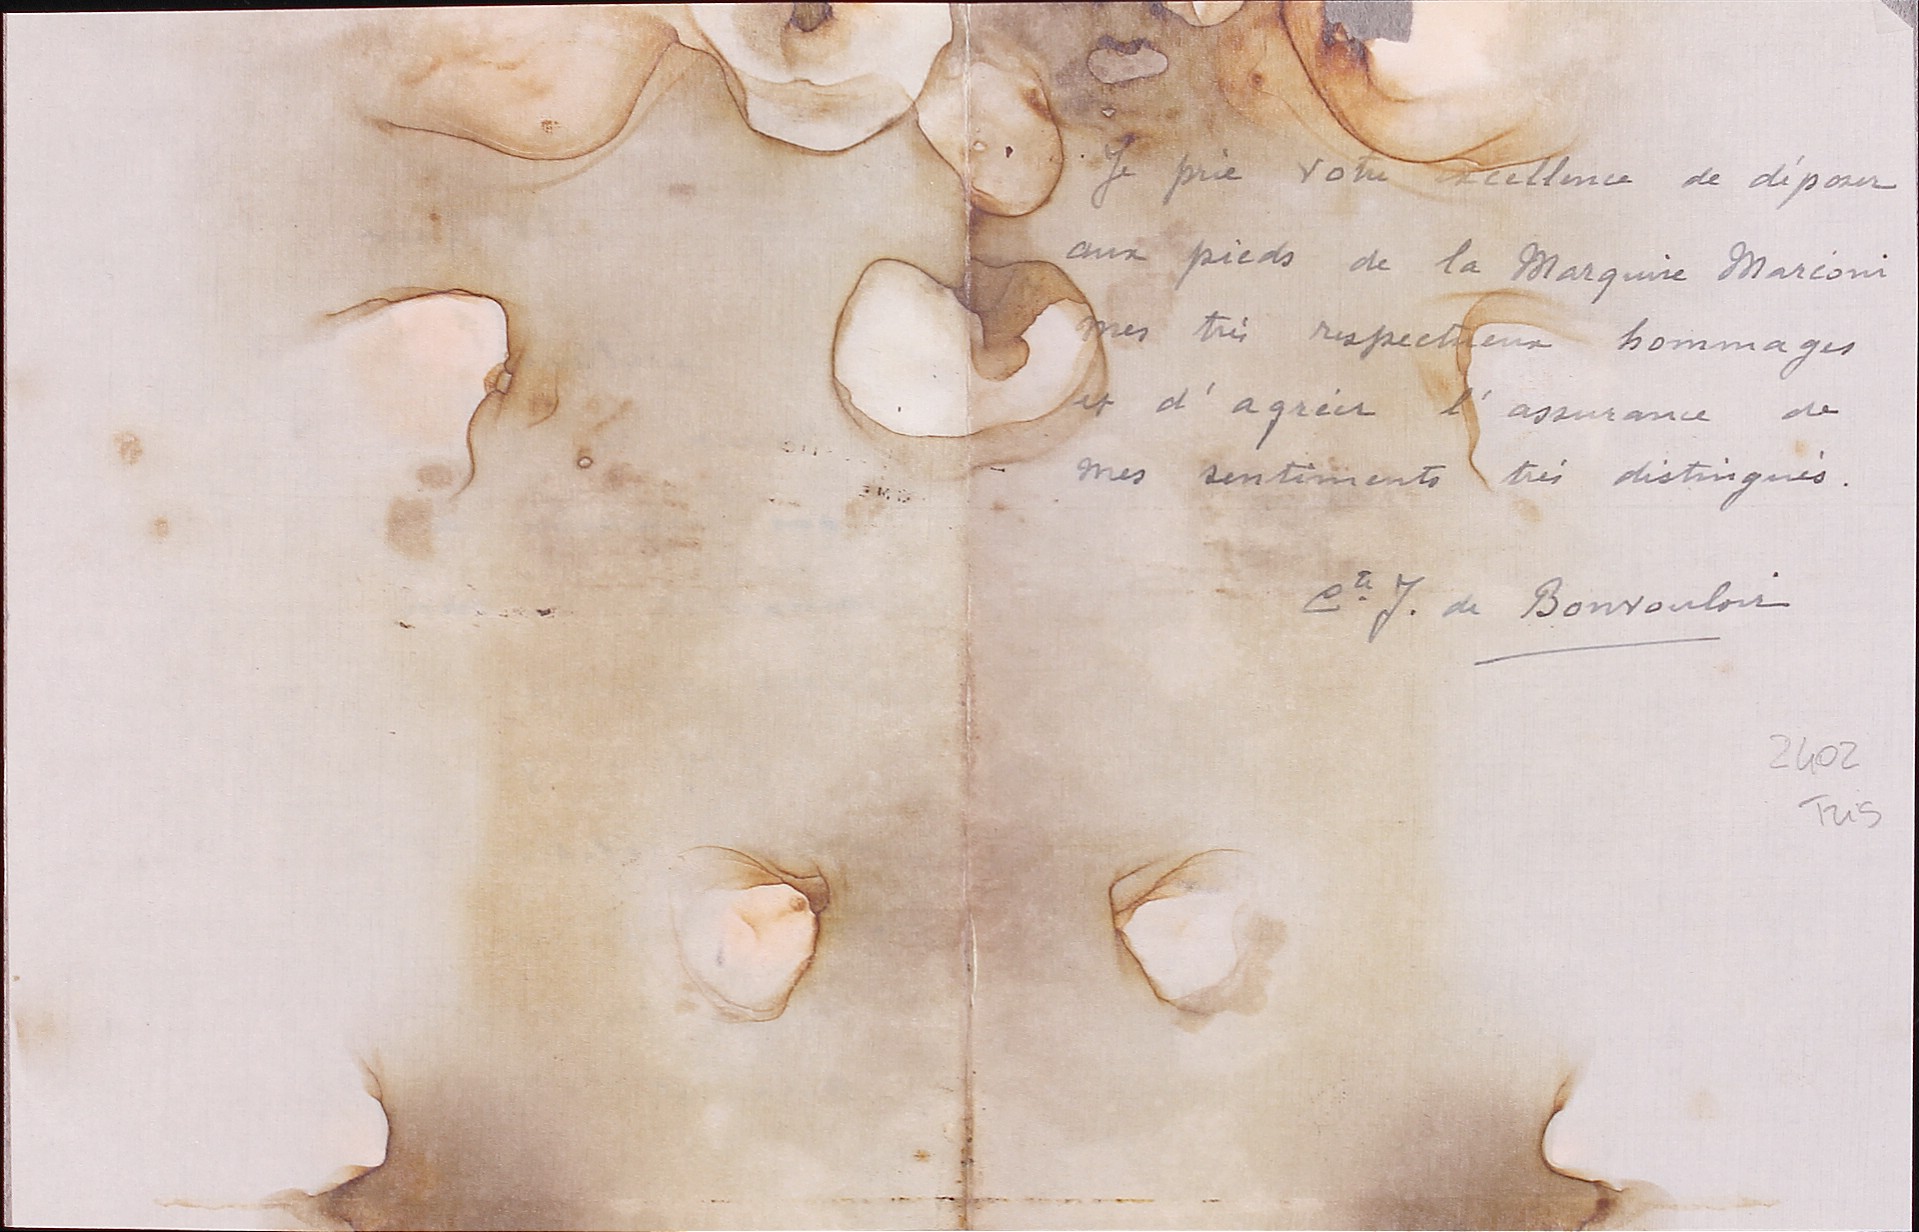 Je prie votre excellence de déposer
aux pieds de la Marquise Marconi
mes très respectueux hommages
et d'agréer l'assurance de
mes sentiments très distingués.
Cte J. de Bonvouloir
2402
TRIS